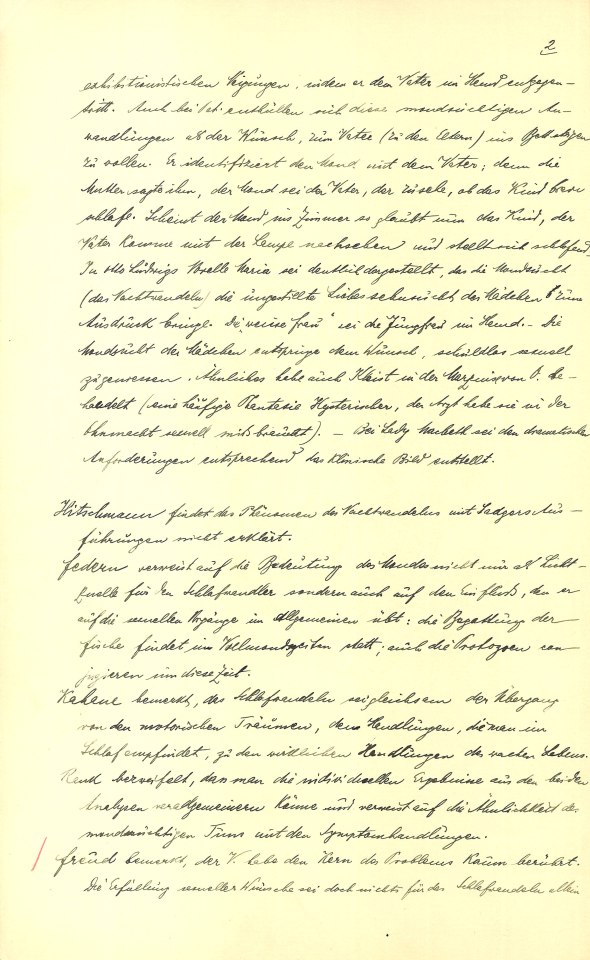 2
exhibitionistischen Neigungen, indem er dem Vater im Hemd entgegen-
tritt. Auch bei enthüllen sich diese mondsüchtigen An-
wandlungen als der Wunsch, zum Vater (zu den Eltern) ins Bett steigen
zu wollen. Er identifiziert den Mond mit dem Vater; denn die
Mutter sagte ihm, der Mond sei der Vater, der zusehe, ob das Kind brav
schlafe. Scheint der Mond ins Zimmer so glaubt nun das Kind, der
Vater komme mit der Lampe nachsehen und stellt sich schlafend.
In Otto Ludwigs Novelle Maria sei deutlich dargestellt, dass die Mondsucht
(das Nachtwandeln) die ungestillte Liebessehnsucht des Mädchens zum
Ausdruck bringe. Die „weisse Frau" sei die Jungfrau im Hemd. – Die
Mondsucht der Mädchen entspringe dem Wunsch, schuldlos sexuell
zu geniessen. Ähnliches habe auch Kleist in der Marquise von O. be-
handelt (eine häufige Phantasie Hysterischer, der Arzt habe sie in der
Ohnmacht sexuell missbraucht). – Bei Lady Macbeth sei den dramatischen
Anforderungen entsprechend das klinische Bild entstellt.
Hitschmann findet das Phänomen des Nachtwandelns mit Sadgers Aus-
führungen nicht erklärt.
Federn verweist auf die Bedeutung des Mondes nicht nur als Licht-
quelle für den Schlafwandler sondern auch auf den Einfluss, den er
auf die sexuellen Vorgänge im Allgemeinen übt: die Begattung der
Fische findet im Vollmondzeiten statt; auch die Protozoen con-
jugieren um diese Zeit.
Kahane bemerkt, das Schlafwandeln sei gleichsam der Übergang
von den motorischen Träumen, den Handlungen, die man im
Schlaf empfindet, zu den wirklichen Handlungen des wachen Lebens.
Rank bezweifelt, dass man die individuellen Ergebnisse aus den beiden
Analysen verallgemeinern könne und verweist auf die Ähnlichkeit des
mondsüchtigen Tuns mit den Symptomhandlungen.
Freud bemerkt, der V. habe den Kern des Problems kaum berührt.
Die Erfüllung sexueller Wünsche sei doch nichts für das Schlafwandeln allein